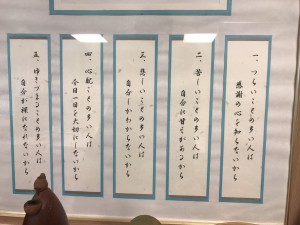 一、つらいことの多い人は
感謝の心を知らないから
二、苦しいことの多い人は
自分に甘さがあるから
三、悲しいことの多い人は
自分しかわからないから
四、心配ことの多い人は
今日一日を大切にしないから
五、ゆきづまることの多い人は
自分が裸になれないから